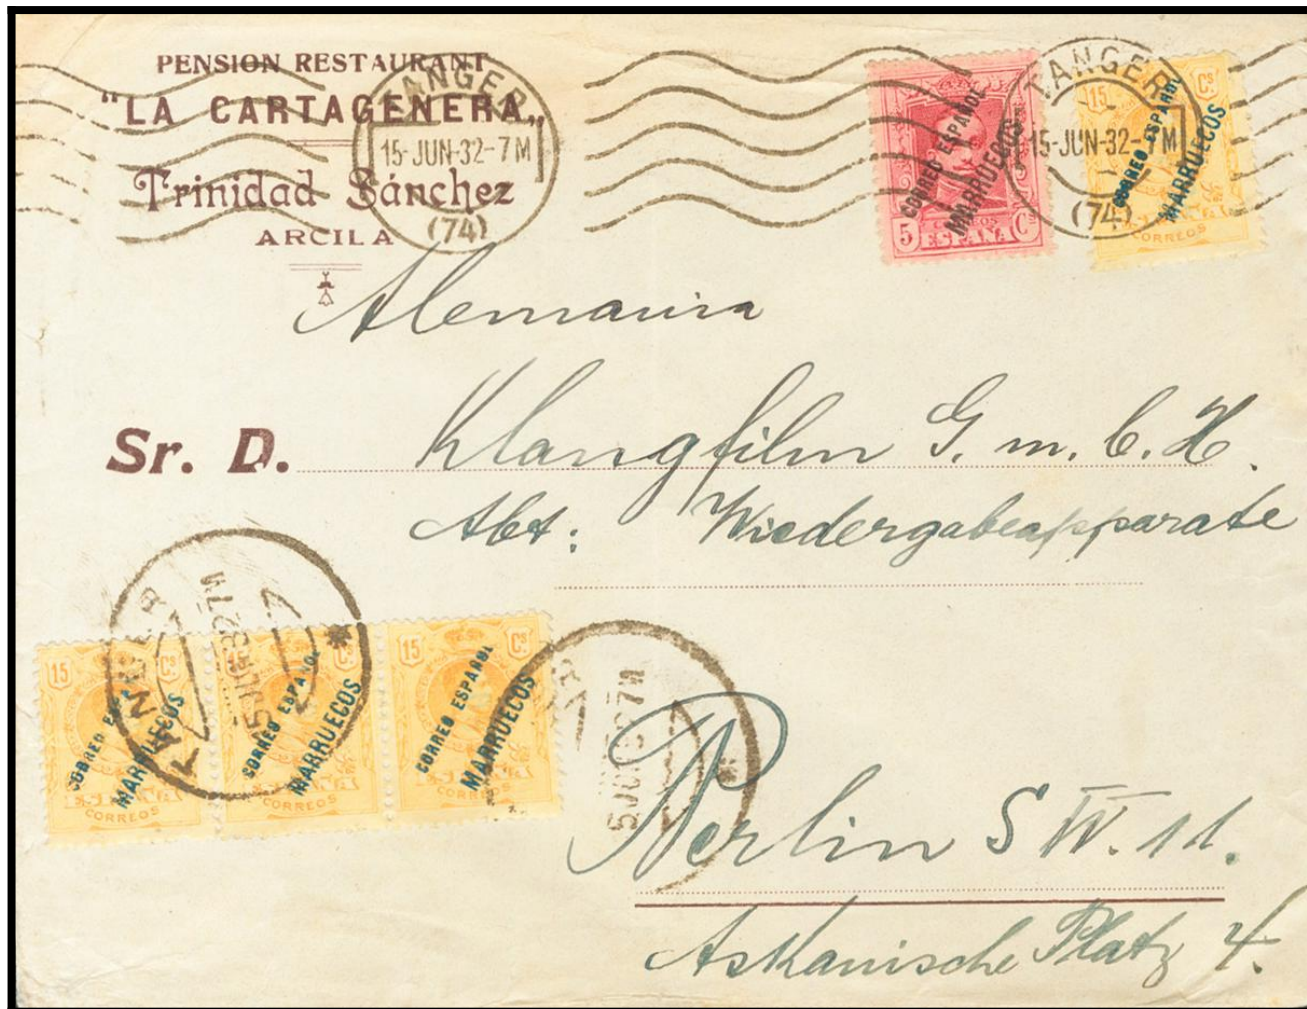 PENSION RESTAURANT
"LA CARTAGENERA„
Trinidad Sánchez
ARCILA
TANGER
15-JUN-32-7M
(74)
5 Cs
CENTIMOS
ESPAÑA
CORREO ESPAÑOL
MARRUECOS
TANGER
15-JUN-32-7M
(74)
15 Cs
CORREO ESPAÑOL
MARRUECOS
CORREOS
Alemania
Sr. D. Klangfilm G.m.b.H.
Abt: Wiedergabeapparate
TANGER
15 Cs
CORREO
MARRUECOS
ESPAÑA
CORREOS
Cs
CORREO ESPAÑOL
MARRUECOS
CORREOS
15 Cs
CORREO ESPAÑOL
MARRUECOS
ESPAÑA
CORREOS
Berlin SW. 11.
Askanische Platz 4.